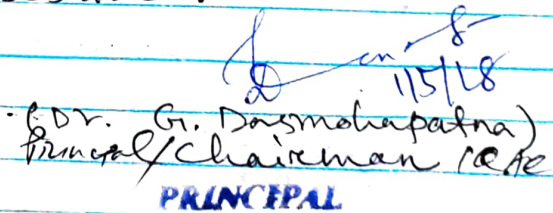 1/5/18
(Dr. G. Dasmohapatra)
Principal/Chairman IQAC
PRINCIPAL